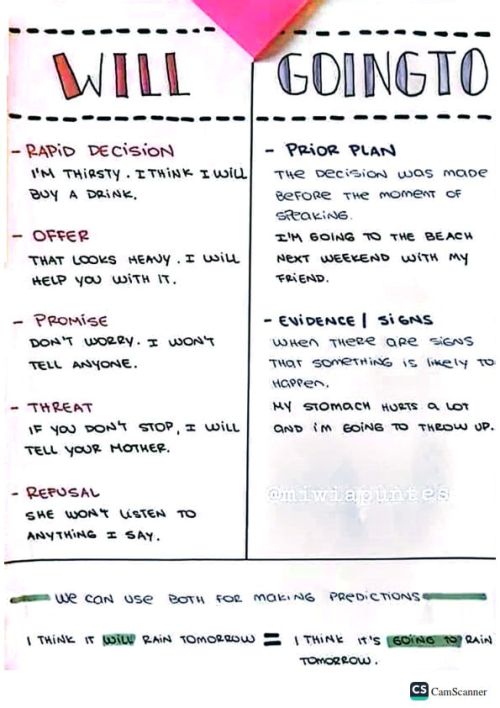 WILL
- RAPID DECISION
I'M THIRSTY. I THINK I WILL
BUY A DRINK.
- OFFER
THAT LOOKS HEAVY. I WILL
HELP YOU WITH IT.
- PROMISE
DON'T WORRY. I WON'T
TELL ANYONE.
- THREAT
IF YOU DON'T STOP, I WILL
TELL YOUR MOTHER.
- REFUSAL
SHE WON'T LISTEN TO
ANYTHING I SAY.
GOING TO
- PRIOR PLAN
THE DECISION WAS MADE
BEFORE THE MOMENT OF
SPEAKING.
I'M GOING TO THE BEACH
NEXT WEEKEND WITH MY
FRIEND.
- EVIDENCE / SIGNS
WHEN THERE ARE SIGNS
THAT SOMETHING IS LIKELY TO
HAPPEN.
MY STOMACH HURTS A LOT
AND I'M GOING TO THROW UP.
@miwiapuntes
WE CAN USE BOTH FOR MAKING PREDICTIONS
I THINK IT WILL RAIN TOMORROW = I THINK IT'S GOING TO RAIN
TOMORROW.
CS CamScanner